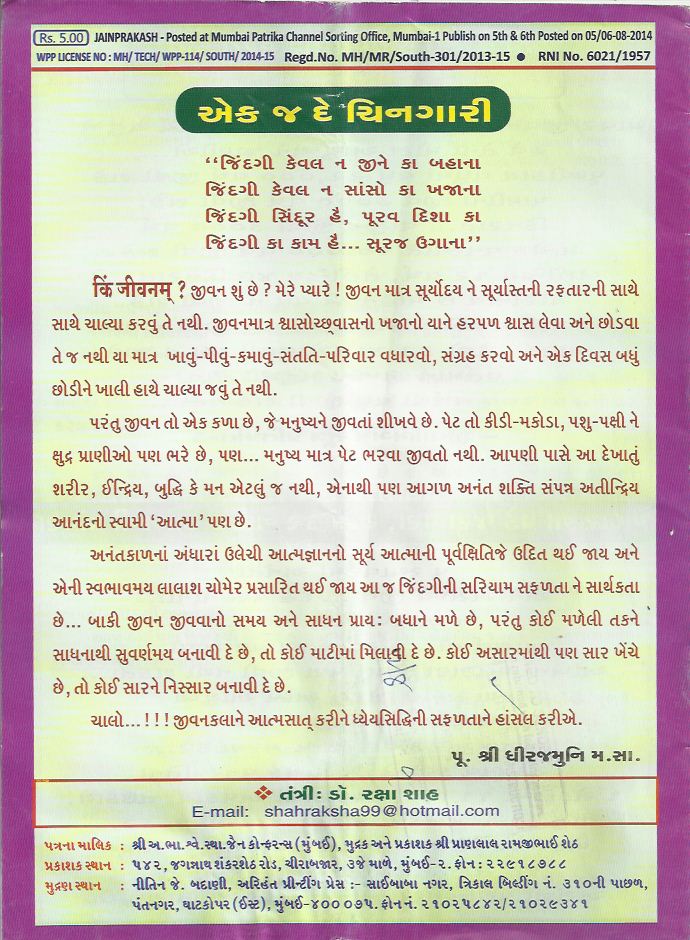 Rs. 5.00 JAINPRAKASH - Posted at Mumbai Patrika Channel Sorting Office, Mumbai-1 Publish on 5th & 6th Posted on 05/06-08-2014
WPP LICENSE NO : MH/ TECH/ WPP-114/ SOUTH/ 2014-15 Regd.No. MH/MR/South-301/2013-15 ● RNI No. 6021/1957
એક જ દે ચિનગારી
“જિંદગી કેવલ ન જીને કા બહાના
જિંદગી કેવલ ન સાંસો કા ખજાના
જિંદગી સિંદૂર હૈ, પૂરવ દિશા કા
જિંદગી કા કામ હૈ... સૂરજ ઉગાના”
किं जीवनम् ? જીવન શું છે ? મેરે પ્યારે ! જીવન માત્ર સૂર્યોદય ને સૂર્યાસ્તની રફતારની સાથે
સાથે ચાલ્યા કરવું તે નથી. જીવનમાત્ર શ્વાસોચ્છ્વાસનો ખજાનો યાને હરપળ શ્વાસ લેવા અને છોડવા
તે જ નથી યા માત્ર ખાવું-પીવું-કમાવું-સંતતિ-પરિવાર વધારવો, સંગ્રહ કરવો અને એક દિવસ બધું
છોડીને ખાલી હાથે ચાલ્યા જવું તે નથી.
પરંતુ જીવન તો એક કળા છે, જે મનુષ્યને જીવતાં શીખવે છે. પેટ તો કીડી-મકોડા, પશુ-પક્ષી ને
ક્ષુદ્ર પ્રાણીઓ પણ ભરે છે, પણ... મનુષ્ય માત્ર પેટ ભરવા જીવતો નથી. આપણી પાસે આ દેખાતું
શરીર, ઈન્દ્રિય, બુદ્ધિ કે મન એટલું જ નથી, એનાથી પણ આગળ અનંત શક્તિ સંપન્ન અતીન્દ્રિય
આનંદનો સ્વામી ‘આત્મા’ પણ છે.
અનંતકાળનાં અંધારાં ઉલેચી આત્મજ્ઞાનનો સૂર્ય આત્માની પૂર્વક્ષિતિજે ઉદિત થઈ જાય અને
એની સ્વભાવમય લાલાશ ચોમેર પ્રસારિત થઈ જાય આ જ જિંદગીની સરિયામ સફળતા ને સાર્થકતા
છે... બાકી જીવન જીવવાનો સમય અને સાધન પ્રાય: બધાને મળે છે, પરંતુ કોઈ મળેલી તકને
સાધનાથી સુવર્ણમય બનાવી દે છે, તો કોઈ માટીમાં મિલાવી દે છે. કોઈ અસારમાંથી પણ સાર ખેંચે
છે, તો કોઈ સારને નિસ્સાર બનાવી દે છે.
ચાલો...!!! જીવનકલાને આત્મસાત્ કરીને ધ્યેયસિદ્ધિની સફળતાને હાંસલ કરીએ.
પૂ. શ્રી ધીરજમુનિ મ.સા.
❖ તંત્રી: ડૉ. રક્ષા શાહ
E-mail: shahraksha99@hotmail.com
પત્રના માલિક : શ્રી અ.ભા.શ્વે.સ્થા.જૈન કોન્ફરન્સ (મુંબઈ), મુદ્રક અને પ્રકાશક શ્રી પ્રાણલાલ રામજીભાઈ શેઠ
પ્રકાશક સ્થાન : ૫૪૨, જગન્નાથ શંકરશેઠ રોડ, ચીરાબજાર, ૩જે માળે, મુંબઈ-૨. ફોન : ૨૨૯૧૮૭૮૮
મુદ્રણ સ્થાન : નીતિન જે. બદાણી, અરિહંત પ્રીન્ટીંગ પ્રેસ :- સાઈબાબા નગર, ત્રિકાલ બિલ્ડીંગ નં. ૩૧૦ની પાછળ,
પંતનગર, ઘાટકોપર (ઈસ્ટ), મુંબઈ-૪૦૦૦૭૫. ફોન નં. ૨૧૦૨૫૮૪૨/૨૧૦૨૯૩૪૧